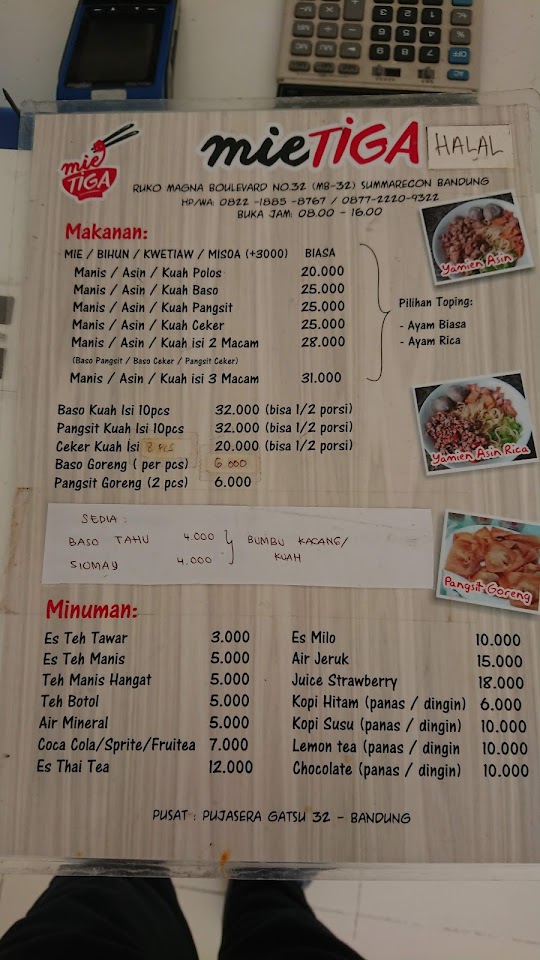 mie TIGA
mieTIGA
HALAL
RUKO MAGNA BOULEVARD NO.32 (MB-32) SUMMARECON BANDUNG
HP/WA: 0822 -1885 -8767 / 0877-2220-9322
BUKA JAM: 08.00 - 16.00
Makanan:
MIE / BIHUN / KWETIAW / MISOA (+3000) BIASA
Manis / Asin / Kuah Polos 20.000
Manis / Asin / Kuah Baso 25.000
Manis / Asin / Kuah Pangsit 25.000
Manis / Asin / Kuah Ceker 25.000
Manis / Asin / Kuah isi 2 Macam 28.000
(Baso Pangsit / Baso Ceker / Pangsit Ceker)
Manis / Asin / Kuah isi 3 Macam 31.000
Pilihan Toping:
- Ayam Biasa
- Ayam Rica
Yamien Asin
Baso Kuah Isi 10pcs 32.000 (bisa 1/2 porsi)
Pangsit Kuah Isi 10pcs 32.000 (bisa 1/2 porsi)
Ceker Kuah Isi 8 PCS 20.000 (bisa 1/2 porsi)
Baso Goreng ( per pcs) 6.000
Pangsit Goreng (2 pcs) 6.000
Yamien Asin Rica
SEDIA :
BASO TAHU 4.000
SIOMAY 4.000
BUMBU KACANG/
KUAH
Pangsit Goreng
Minuman:
Es Teh Tawar 3.000
Es Teh Manis 5.000
Teh Manis Hangat 5.000
Teh Botol 5.000
Air Mineral 5.000
Coca Cola/Sprite/Fruitea 7.000
Es Thai Tea 12.000
Es Milo 10.000
Air Jeruk 15.000
Juice Strawberry 18.000
Kopi Hitam (panas / dingin) 6.000
Kopi Susu (panas / dingin) 10.000
Lemon tea (panas / dingin 10.000
Chocolate (panas / dingin) 10.000
PUSAT : PUJASERA GATSU 32 - BANDUNG